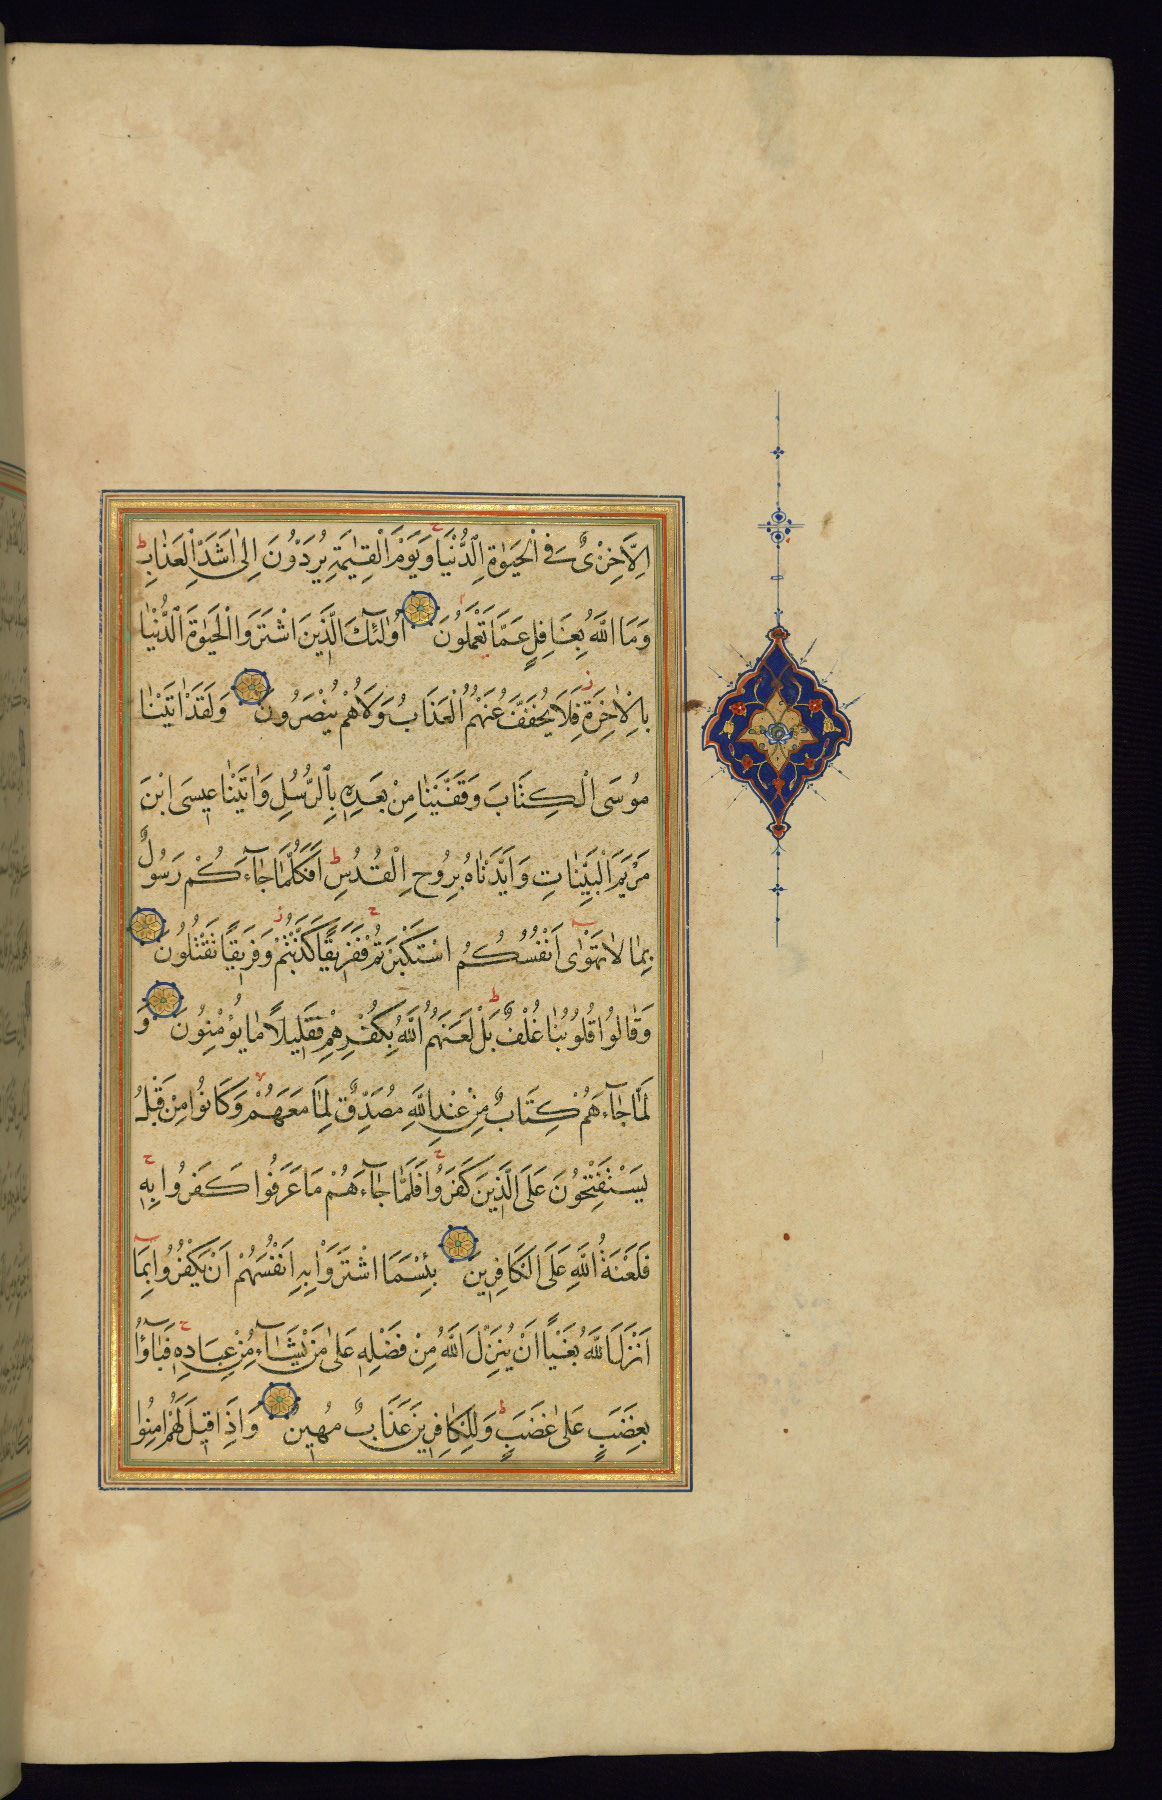 اِلَّا خِزْىٌ فِى الْحَيٰوةِ الدُّنْيَا وَيَوْمَ الْقِيٰمَةِ يُرَدُّونَ اِلٰى اَشَدِّ الْعَذَابِ ط
وَمَا اللّٰهُ بِغَافِلٍ عَمَّا تَعْمَلُونَ اُولٰئِكَ الَّذِينَ اشْتَرَوُا الْحَيٰوةَ الدُّنْيَا
بِالْاٰخِرَةِ ز فَلَا يُخَفَّفُ عَنْهُمُ الْعَذَابُ وَلَا هُمْ يُنْصَرُونَ وَلَقَدْ اٰتَيْنَا
مُوسَى الْكِتَابَ وَقَفَّيْنَا مِنْ بَعْدِهِ بِالرُّسُلِ وَاٰتَيْنَا عِيسَى ابْنَ
مَرْيَمَ الْبَيِّنَاتِ وَاَيَّدْنَاهُ بِرُوحِ الْقُدُسِ ط اَفَكُلَّمَا جَآءَكُمْ رَسُولٌ
بِمَا لَا تَهْوٰى اَنْفُسُكُمُ اسْتَكْبَرْتُمْ ج فَفَرِيقًا كَذَّبْتُمْ ز وَفَرِيقًا تَقْتُلُونَ
وَقَالُوا قُلُوبُنَا غُلْفٌ ط بَلْ لَعَنَهُمُ اللّٰهُ بِكُفْرِهِمْ فَقَلِيلًا مَا يُؤْمِنُونَ وَ
لَمَّا جَآءَهُمْ كِتَابٌ مِنْ عِنْدِ اللّٰهِ مُصَدِّقٌ لِمَا مَعَهُمْ لا وَكَانُوا مِنْ قَبْلُ
يَسْتَفْتِحُونَ عَلَى الَّذِينَ كَفَرُوا ج فَلَمَّا جَآءَهُمْ مَا عَرَفُوا كَفَرُوا بِهِ ج
فَلَعْنَةُ اللّٰهِ عَلَى الْكَافِرِينَ بِئْسَمَا اشْتَرَوْا بِهِ اَنْفُسَهُمْ اَنْ يَكْفُرُوا بِمَآ
اَنْزَلَ اللّٰهُ بَغْيًا اَنْ يُنَزِّلَ اللّٰهُ مِنْ فَضْلِهِ عَلٰى مَنْ يَشَآءُ مِنْ عِبَادِهِ ج فَبَآؤُا
بِغَضَبٍ عَلٰى غَضَبٍ ط وَلِلْكَافِرِينَ عَذَابٌ مُهِينٌ وَاِذَا قِيلَ لَهُمْ اٰمِنُوا